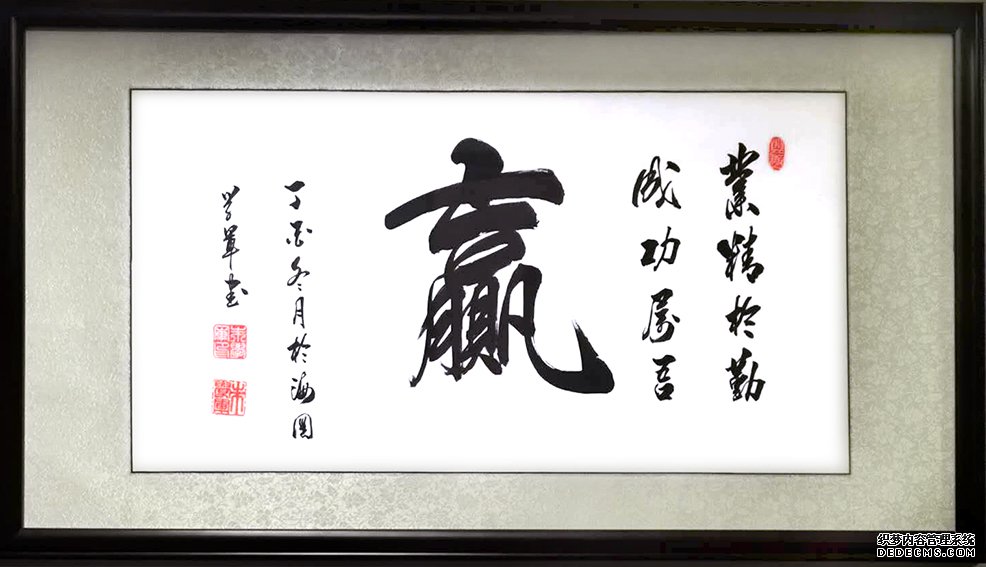 業精於勤
成功属吾
贏
丁酉冬月於海
学軍书
织梦内容管理系统
DEDECMS.COM